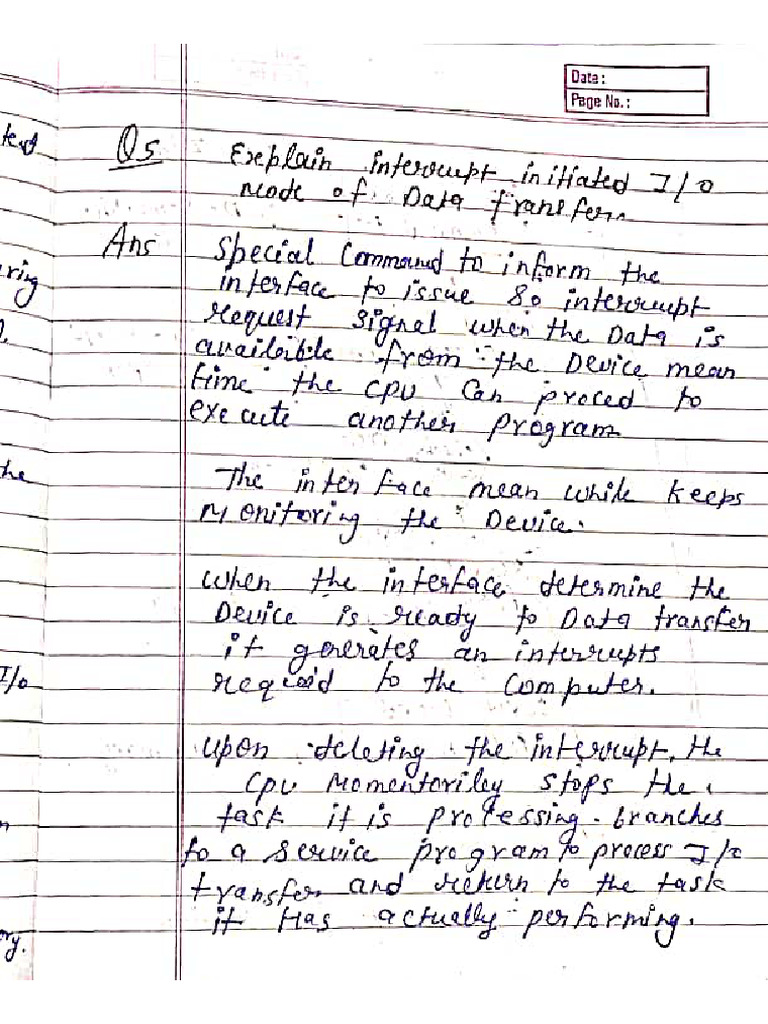 Date:
Page No.:
Q5 Explain interrupt initiated I/O
mode of Data transfer.
Ans Special Command to inform the
interface to issue So interrupt
request signal when the Data is
availaible from the Device mean
time the CPU Can proced to
execute another program
The interface mean while keeps
Monitoring the Device.
when the interface determine the
Device is ready to Data transfer
it generates an interrupts
to the Computer.
Upon deleting the interrupt, the
CPU Momentoriley stops the
task it is processing branches
to a service program to process I/O
transfer and return to the task
it Has actually performing.
ked
ring
he
I/o
n
ory.